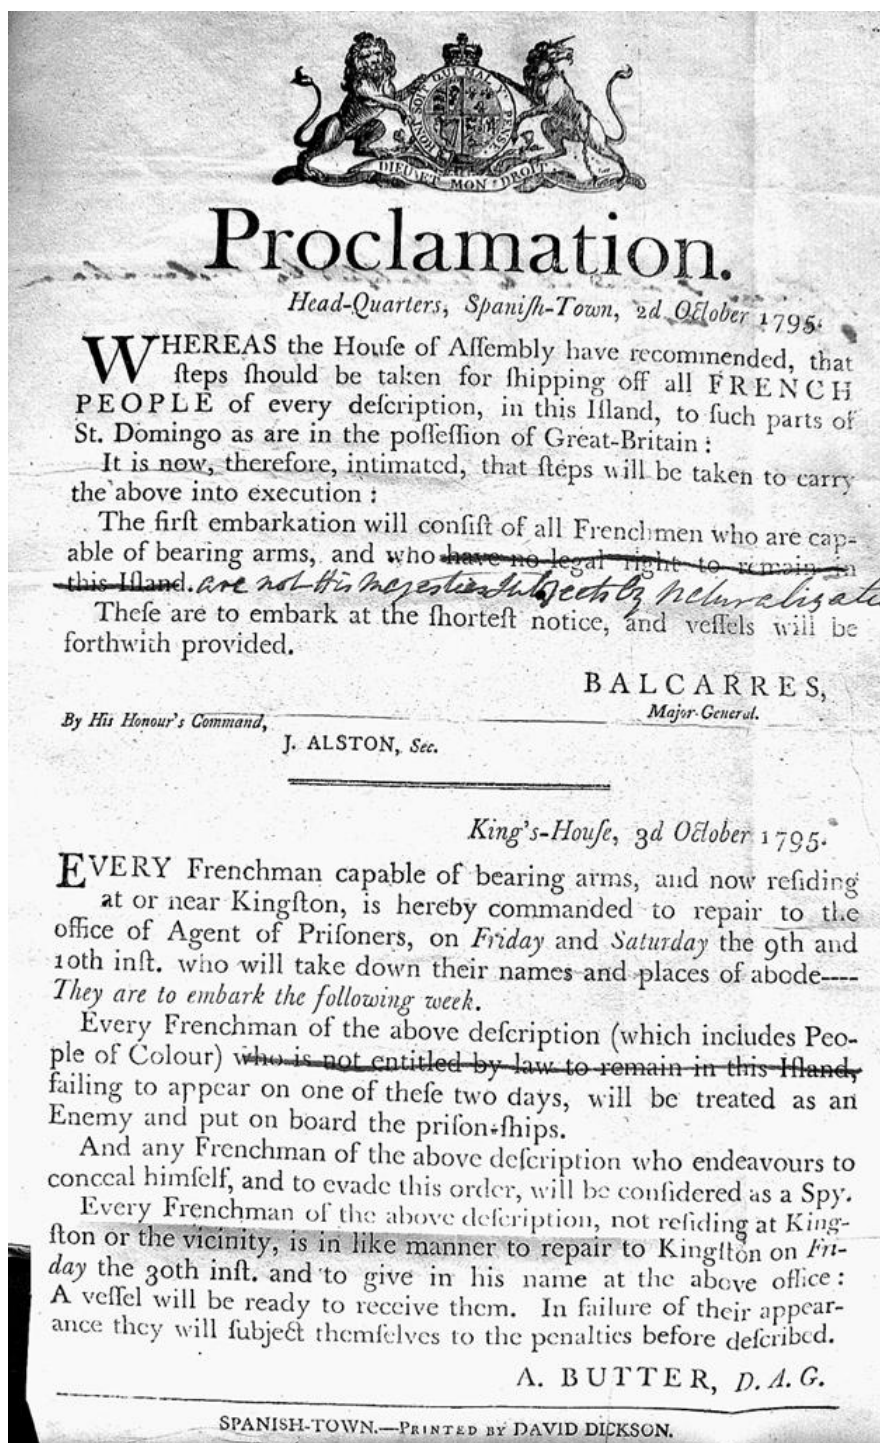 HONI SOIT QUI MAL Y PENSE
DIEU ET MON DROIT
Proclamation.
Head-Quarters, Spaniſh-Town, 2d October 1795.
WHEREAS the Houſe of Aſſembly have recommended, that
ſteps ſhould be taken for ſhipping off all FRENCH
PEOPLE of every deſcription, in this Iſland, to ſuch parts of
St. Domingo as are in the poſſeſſion of Great-Britain :
It is now, therefore, intimated, that ſteps will be taken to carry
the above into execution :
The firſt embarkation will conſiſt of all Frenchmen who are cap-
able of bearing arms, and who have no legal right to remain in
this Iſland. are not His Majesties Subjects by Naturalizatio
Theſe are to embark at the ſhorteſt notice, and veſſels will be
forthwith provided.
BALCARRES,
Major-General.
By His Honour's Command,
J. ALSTON, Sec.
King's-Houſe, 3d October 1795.
EVERY Frenchman capable of bearing arms, and now reſiding
at or near Kingſton, is hereby commanded to repair to the
office of Agent of Priſoners, on Friday and Saturday the 9th and
10th inſt. who will take down their names and places of abode----
They are to embark the following week.
Every Frenchman of the above deſcription (which includes Peo-
ple of Colour) who is not entitled by law to remain in this Iſland,
failing to appear on one of theſe two days, will be treated as an
Enemy and put on board the priſon-ſhips.
And any Frenchman of the above deſcription who endeavours to
conceal himſelf, and to evade this order, will be conſidered as a Spy.
Every Frenchman of the above deſcription, not reſiding at King-
ſton or the vicinity, is in like manner to repair to Kingſton on Fri-
day the 30th inſt. and to give in his name at the above office :
A veſſel will be ready to receive them. In failure of their appear-
ance they will ſubject themſelves to the penalties before deſcribed.
A. BUTTER, D. A. G.
SPANISH-TOWN.—PRINTED BY DAVID DICKSON.